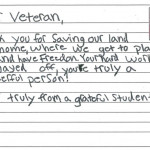 r Veteran,
k you for saving our land
home, where we get to pla
and have freedom. Your hard work
payed off, you're truly a
eful person!
truly from a grateful student